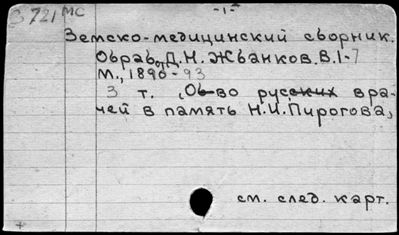 З 721 МС
-1-
Земско-медицинский сборник.
Обраб. Д.Н. Жбанков. В. 1-7
М., 1890-93
3 т. (Об-во русских вра-
чей в память Н.И. Пирогова,
см. след. карт.